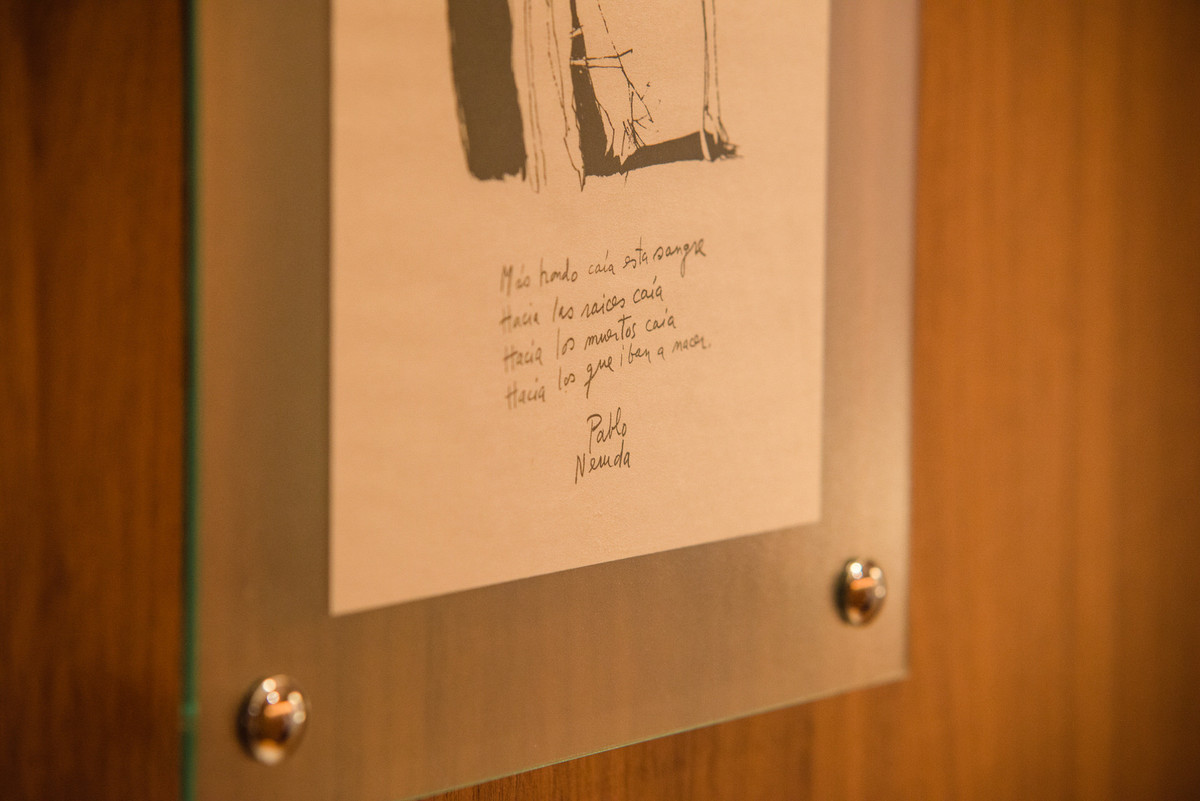 Más hondo caía esta sangre
Hacia las raíces caía
Hacia los muertos caía
Hacia los que iban a nacer.
Pablo
Neruda